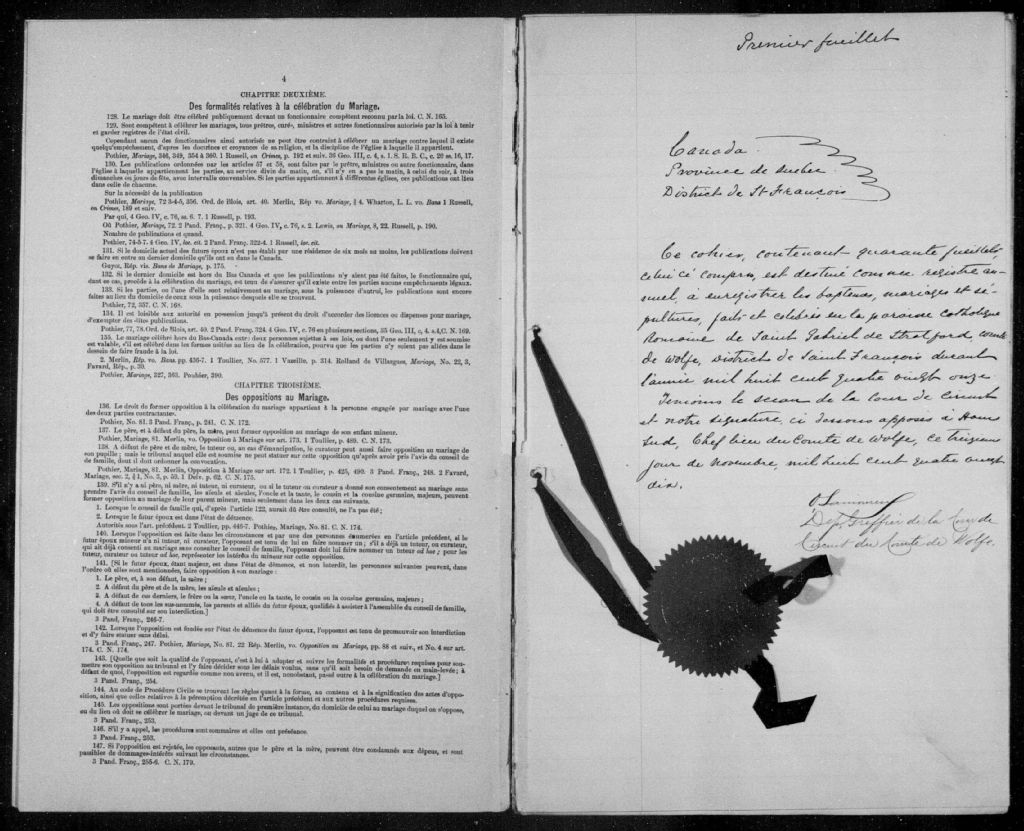 4
CHAPITRE DEUXIÈME.
Des formalités relatives à la célébration du Mariage.
128. Le mariage doit être célébré publiquement devant un fonctionnaire compétent reconnu par la loi. C. N. 165.
129. Sont compétents à célébrer les mariages, tous prêtres, curés, ministres et autres fonctionnaires autorisés par la loi à tenir
et garder registres de l'état civil.
Cependant aucun des fonctionnaires ainsi autorisés ne peut être contraint à célébrer un mariage contre lequel il existe
quelqu'empêchement, d'après les doctrines et croyances de sa religion, et la discipline de l'église à laquelle il appartient.
Pothier, Mariage, 346, 349, 354 & 360. 1 Russell, on Crimes, p. 192 et suiv. 36 Geo. III, c. 4, s. 1. S. R. B. C., c. 20 ss. 16, 17.
130. Les publications ordonnées par les articles 57 et 58, sont faites par le prêtre, ministre ou autre fonctionnaire, dans
l'église à laquelle appartiennent les parties, au service divin du matin, ou, s'il n'y en a pas le matin, à celui du soir, à trois
dimanches ou jours de fête, avec intervalle convenables. Si les parties appartiennent à différentes églises, ces publications ont lieu
dans celle de chacune.
Sur la nécessité de la publication
Pothier, Mariage, 72 3-4-5, 356. Ord. de Blois, art. 40. Merlin, Rép vo. Mariage, § 4. Wharton, L. L. vo. Bans 1 Russell,
on Crimes, 189 et suiv.
Par qui, 4 Geo. IV, c. 76, ss. 6. 7. 1 Russell, p. 193.
Où Pothier, Mariage, 72. 2 Pand. Franç., p. 321. 4 Geo. IV, c. 76, s. 2. Lewis, ou Mariage, 8, 22. Russell, p. 190.
Nombre de publications et quand.
Pothier, 74-5 7. 4 Geo. IV, loc. cit. 2 Pand. Franç. 322-4. 1 Russell, loc. cit.
131. Si le domicile actuel des futurs époux n'est pas établi par une résidence de six mois au moins, les publications doivent
se faire en outre au dernier domicile qu'ils ont eu dans le Canada.
Guyot, Rép. vis. Bans de Mariage, p. 175.
132. Si le dernier domicile est hors du Bas Canada et que les publications n'y aient pas été faites, le fonctionnaire qui,
dans ce cas, procède à la célébration du mariage, est tenu de s'assurer qu'il existe entre les parties aucuns empêchements légaux.
133. Si les parties, ou l'une d'elle sont relativement au mariage, sous la puissance d'autrui, les publications sont encore
faites au lieu du domicile de ceux sous la puissance desquels elle se trouvent.
Pothier, 72, 357. C. N. 168.
134. Il est loisible aux autorité en possession jusqu'à présent du droit d'accorder des licences ou dispenses pour mariage,
d'exempter des dites publications.
Pothier, 77, 78. Ord. de Blois, art. 40. 2 Pand. Franç. 324. 4 Geo. IV, c. 76 en plusieurs sections, 35 Geo. III, c. 4. s.4,C. N. 169.
135. Le mariage célébré hors du Bas-Canada entre deux personnes sujettes à ses lois, ou dont l'une seulement y est soumise
est valable, s'il est célébré dans les formes usitées au lieu de la célébration, pourvu que les parties n'y soient pas allées dans le
dessein de faire fraude à la loi.
2. Merlin, Rép. vo. Bans. pp. 436-7. 1 Toullier, No. 577. 1 Vazeille, p. 314. Rolland de Villargues, Mariage, No. 22, 3,
Favard, Rép., p. 39.
Pothier, Mariage, 327, 363. Poubier, 390.
CHAPITRE TROISIÈME.
Des oppositions au Mariage.
136. Le droit de former opposition à la célébration du mariage appartient à la personne engagée par mariage avec l'une
des deux parties contractantes.
Pothier, No. 81. 3 Pand. Franç., p. 241. C. N. 172.
137. Le père, et à défaut du père, la mère, peut former opposition au mariage de son enfant mineur.
Pothier, Mariage, 81. Merlin, vo. Opposition à Mariage sur art. 173. 1 Toullier, p. 489. C. N. 173.
138. A défaut de père et de mère, le tuteur ou, au cas d'émancipation, le curateur peut aussi faire opposition au mariage de
son pupille; mais le tribunal auquel elle est soumise ne peut statuer sur cette opposition qu'après avoir pris l'avis du conseil de
famille, dont il doit ordonner la convocation.
Pothier, Mariage, 81. Merlin, Opposition à Mariage sur art. 172. 1 Toullier, p. 425, 490. 3 Pand. Franç., 248. 2 Favard,
Mariage, sec. 2, § 1, No. 5, p. 59. 1 Defr. p. 62. C. N. 175.
139. S'il n'y a ni père, ni mère, ni tuteur, ni curateur, ou si le tuteur ou curateur a donné son consentement au mariage sans
prendre l'avis du conseil de famille, les aïeuls et aïeules, l'oncle et la tante, le cousin et la cousine germains, majeurs, peuvent
former opposition au mariage de leur parent mineur, mais seulement dans les deux cas suivants.
1. Lorsque le conseil de famille qui, d'après l'article 122, aurait dû être consulté, ne l'a pas été;
2. Lorsque le futur époux est dans l'état de démence.
Autorités sous l'art. précédent. 2 Toullier, pp. 445-7. Pothier, Mariage, No. 81. C. N. 174.
140. Lorsque l'opposition est faite dans les circonstances et par une des personnes énumérées en l'article précédent, si le
futur époux mineur n'a ni tuteur, ni curateur, l'opposant est tenu de lui en faire nommer un; s'il a déjà un tuteur, ou curateur,
qui ait déjà consenti au mariage sans consulter le conseil de famille, l'opposant doit lui faire nommer un tuteur ad hoc; pour les
tuteur, curateur ou tuteur ad hoc, représenter les intérêts du mineur sur cette opposition.
141. [Si le futur époux, étant majeur, est dans l'état de démence, et non interdit, les personnes suivantes peuvent, dans
l'ordre où elles sont mentionnées, faire opposition à son mariage:
1. Le père, et, à son défaut, la mère;
2. A défaut du père et de la mère, les aïeuls et aïeules;
3. A défaut de ces derniers, le frère ou la sœur, l'oncle ou la tante, le cousin ou la cousine germains, majeurs;
4. A défaut de tous les sus-nommés, les parents et alliés du futur époux, qualifiés à assister à l'assemblée du conseil de famille,
qui doit être consulté sur son interdiction.]
3 Pand, Franç., 246-7.
142. Lorsque l'opposition est fondée sur l'état de démence du futur époux, l'opposant est tenu de promouvoir son interdiction
et d'y faire statuer sans délai.
3 Pand. Franç., 247. Pothier, Mariage, No. 81. 22 Rép. Merlin, vo. Opposition au Mariage, pp. 88 et suiv., et No. 4 sur art.
174. C. N. 174.
143. [Quelle que soit la qualité de l'opposant, c'est à lui à adopter et suivre les formalités et procédures requises pour sou-
mettre son opposition au tribunal et l'y faire décider sous les délais voulus, sans qu'il soit besoin de demande en main-levée; à
défaut de quoi, l'opposition est regardée comme non avenu, et il est, nonobstant, passé outre à la célébration du mariage.]
3 Pand. Franç., 254.
144. Au code de Procédure Civile se trouvent les règles quant à la forme, au contenu et à la signification des actes d'oppo-
sition, ainsi que celles relatives à la péremption décrétée en l'article précédent et aux autres procédures requises.
145. Les oppositions sont portées devant le tribunal de première instance, du domicile de celui au mariage duquel on s'oppose,
ou du lieu où doit se célébrer le mariage, ou devant un juge de ce tribunal.
3 Pand. Franç., 253.
146. S'il y a appel, les procédures sont sommaires et elles ont préséance.
3 Pand. Franç., 253.
147. Si l'opposition est rejetée, les opposants, autres que le père et la mère, peuvent être condamnés aux dépens, et sont
passibles de dommages-intérêts suivant les circonstances.
3 Pand. Franç., 255-6. C. N. 179.
Premier feuillet
Canada
Province de Quebec
District de St François
Ce cahier, contenant quarante feuillets
celui cé compris, est destiné comme registre an-
nuel, à enregistrer les baptemes, mariages et sé-
pultures, faits et celebrés sur la paroisse catholique
Romaine de Saint Gabriel de Stratford, comté
de Wolfe, District de Saint François durant
l'année mil huit cent quatre vingt onze.
Temoins le sceau de la cour de circuit
et notre signature, ci dessous apposés à Ham
Sud, Chef lieu du Comté de Wolfe, ce treizieme
jour de Novembre, mil huit cent quatre vingt
dix.
Dep. Greffier de la Cour de
Circuit du Comté de Wolfe.